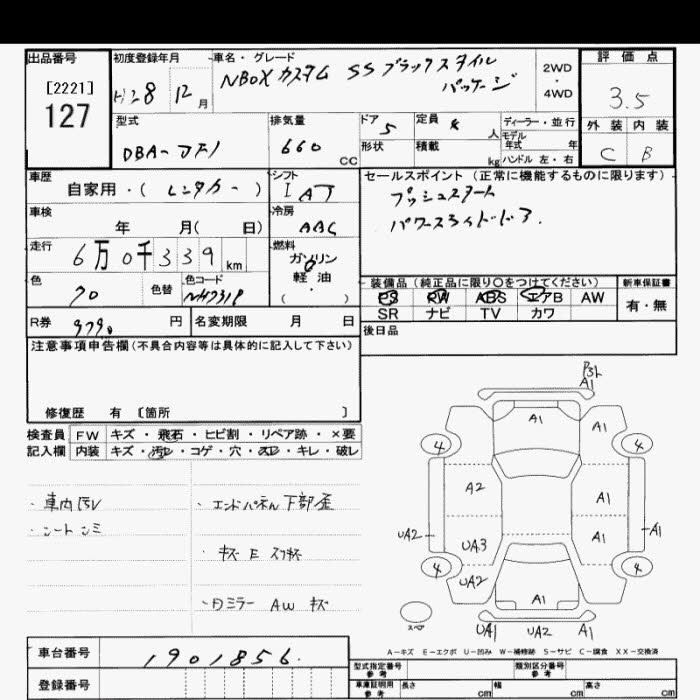 出品番号
[2221]
127
初度登録年月
H28 12月
車名・グレード
NBOX カスタム SS ブラックスタイル
パッケージ
2WD
4WD
評価点
3.5
外装 内装
C B
型式
DBA-JF1
排気量
660 cc
ドア 5
形状
定員 4 人
積載 kg
ディーラー・並行
モデル年式 年
ハンドル 左・右
車歴
自家用・( レンタカー )
シフト
I AT
車検
年 月( 日)
冷房
AAC
走行
6万0千339 km
燃料
ガソリン
軽油
( ・ )
色
色替
色コード
NH731P
セールスポイント(正常に機能するものに限ります)
プッシュスタート
パワースライドドア
装備品(純正品に限り〇をつけてください)
PS PW ABS エアB AW
SR ナビ TV カワ
新車保証書
有・無
後日品
R券 9790 円
名変期限 月 日
注意事項申告欄(不具合内容等は具体的に記入して下さい)
修復歴 有 〔箇所 〕
検査員 FW キズ・飛石・ヒビ割・リペア跡・×要
記入欄 内装 キズ・汚レ・コゲ・穴・スレ・キレ・破レ
・車内汚レ
・シートシミ
・エンドパネル下部歪
・キズ E スリ傷
・Dミラー AW キズ
A1
A1
A1
4
4
A2
A1
UA2
UA3
A1
A1
4
4
UA2
A1
スペア
UA1 UA2 A1
A-キズ E-エクボ U-凹み W-補修跡 S-サビ C-腐食 XX-交換済
車台番号 1901856
登録番号
型式指定番号
参考
類別区分番号
参考
車庫証明用
参考
長さ cm
幅 cm
高さ cm